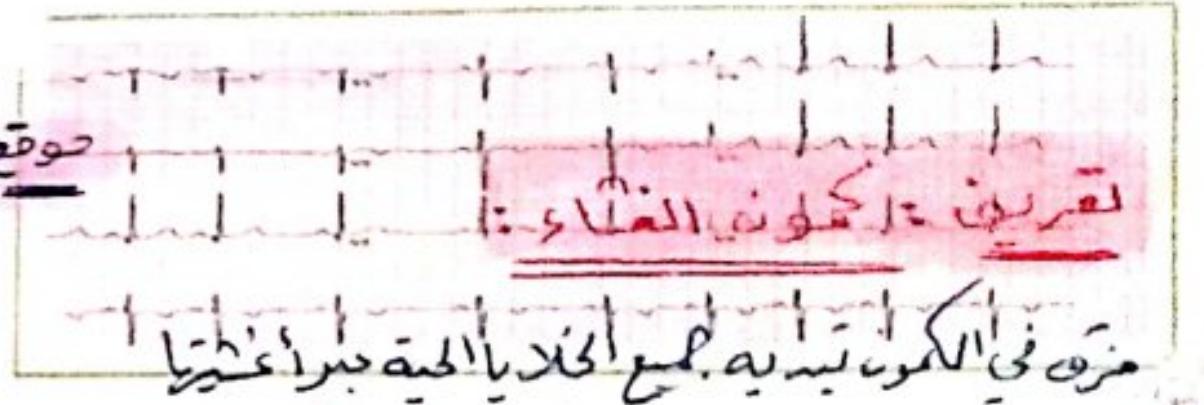 تعريف: كمون الغشاء:
فرق في الكمون تبديه جميع الخلايا الحية عبر أغشيتها